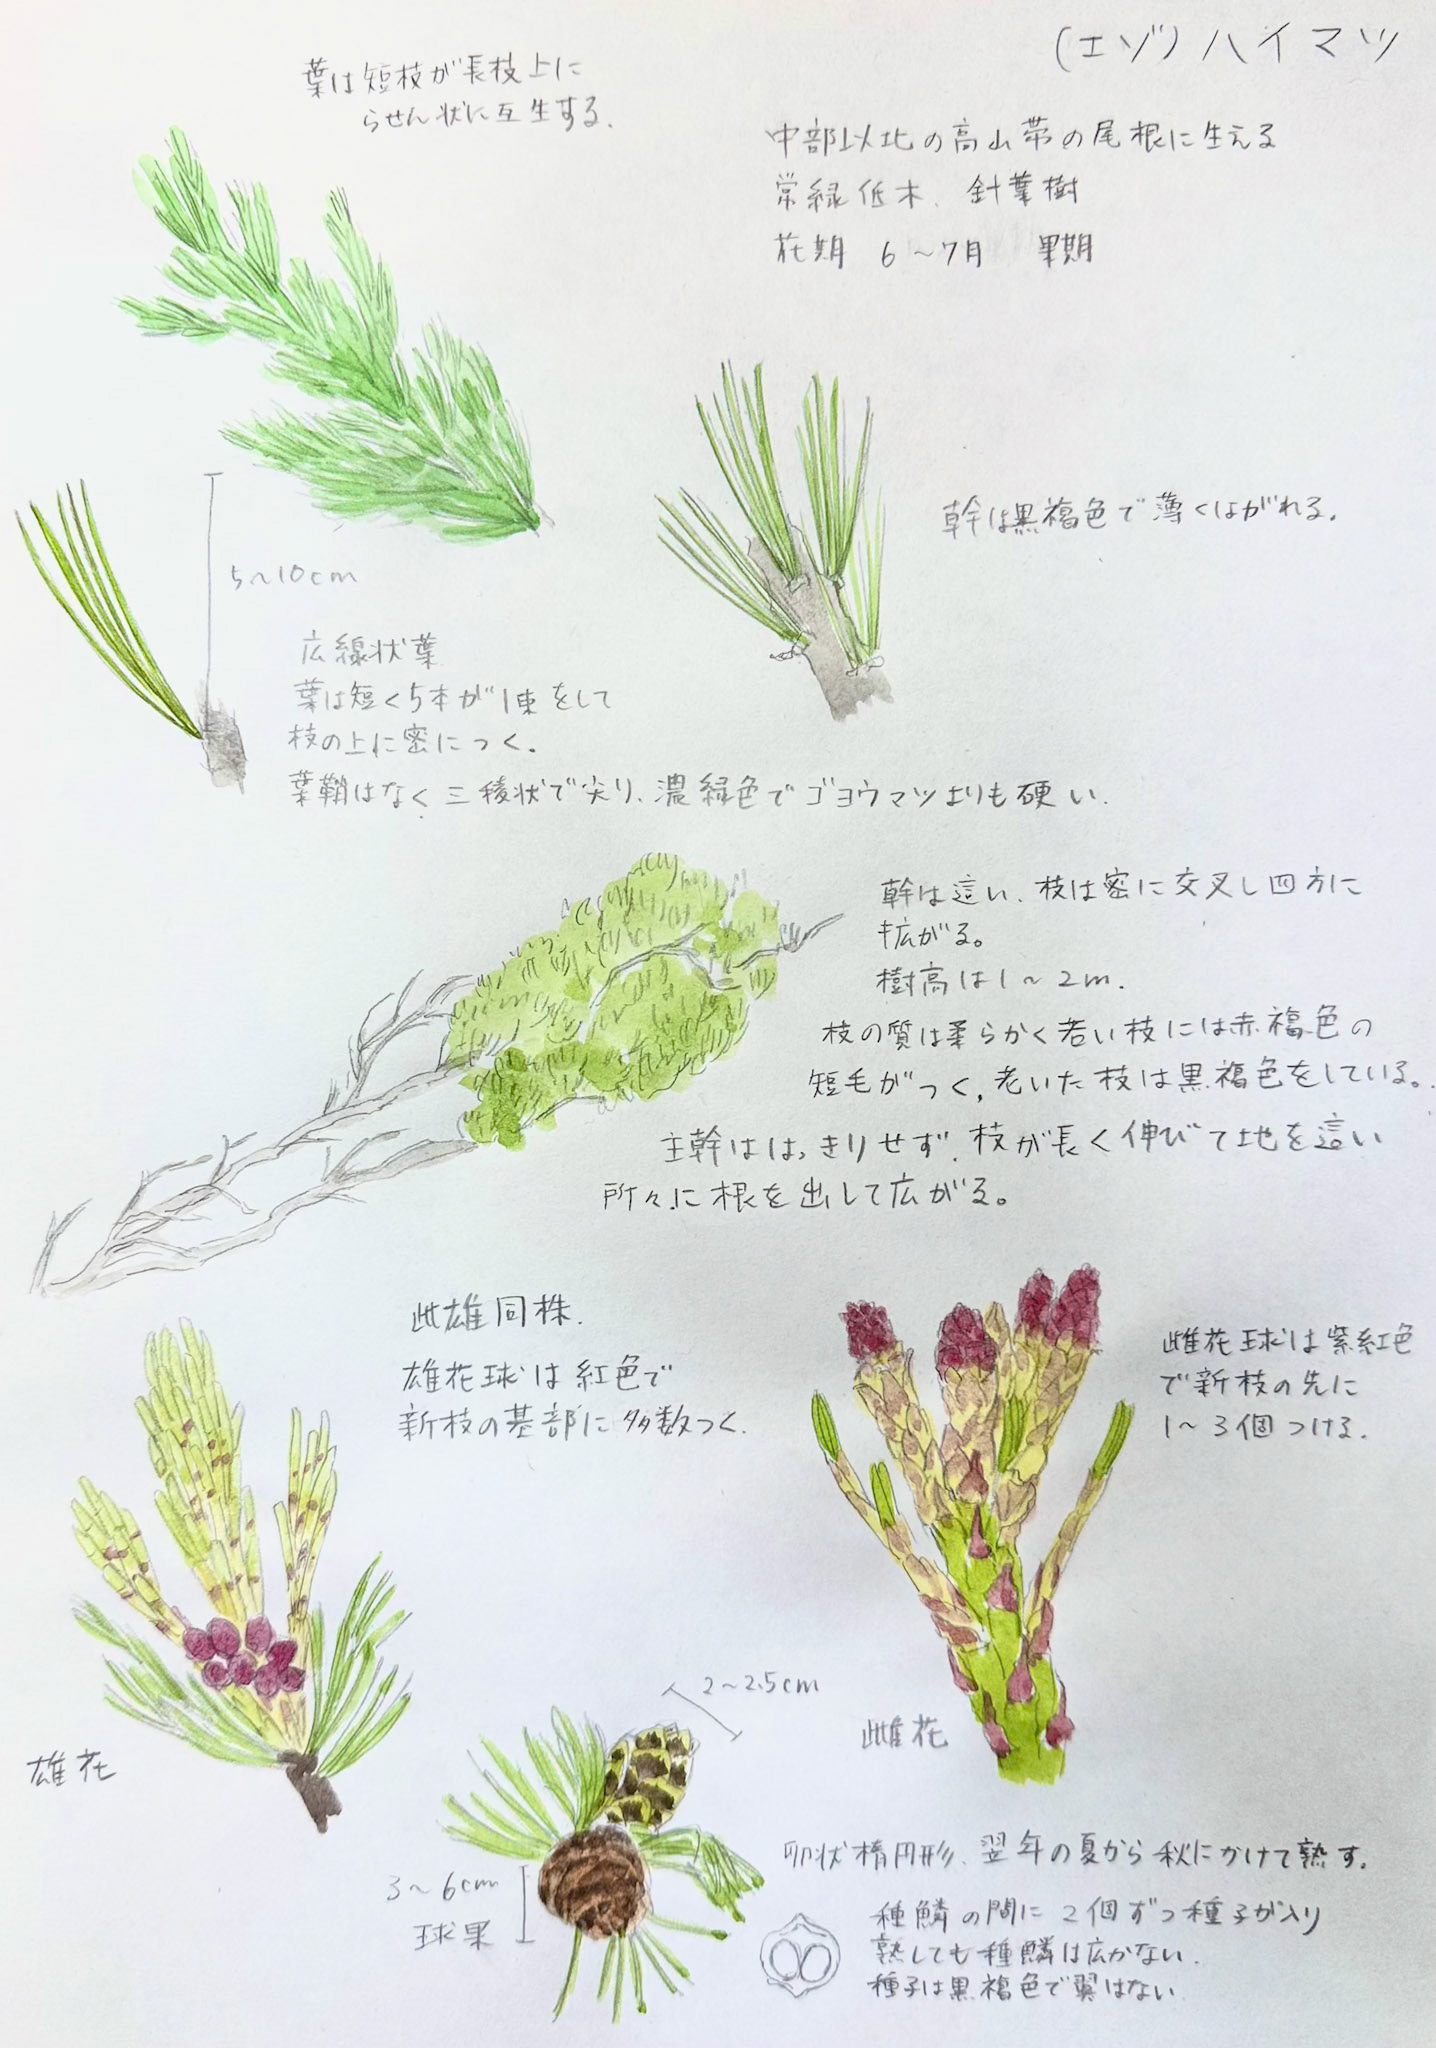 (エゾ)ハイマツ
葉は短枝が長枝上に
らせん状に互生する.
中部以北の高山帯の尾根に生える
常緑低木. 針葉樹
花期 6〜7月 果期
幹は黒褐色で薄くはがれる.
5〜10cm
広線状葉
葉は短く5本が1束をして
枝の上に密につく.
葉鞘はなく三稜状で尖り、濃緑色でゴヨウマツよりも硬い.
幹は這い、枝は密に交叉し四方に
拡がる。
樹高は1〜2m.
枝の質は柔らかく若い枝には赤褐色の
短毛がつく, 老いた枝は黒褐色をしている。
主幹ははっきりせず、枝が長く伸びて地を這い
所々に根を出して広がる。
雌雄同株.
雄花球は紅色で
新枝の基部に多数つく.
雌花球は紫紅色
で新枝の先に
1〜3個つける.
雄花
雌花
2〜2.5cm
3〜6cm
球果
卵状楕円形、翌年の夏から秋にかけて熟す.
種鱗の間に2個ずつ種子が入り
熟しても種鱗は広かない.
種子は黒褐色で翼はない